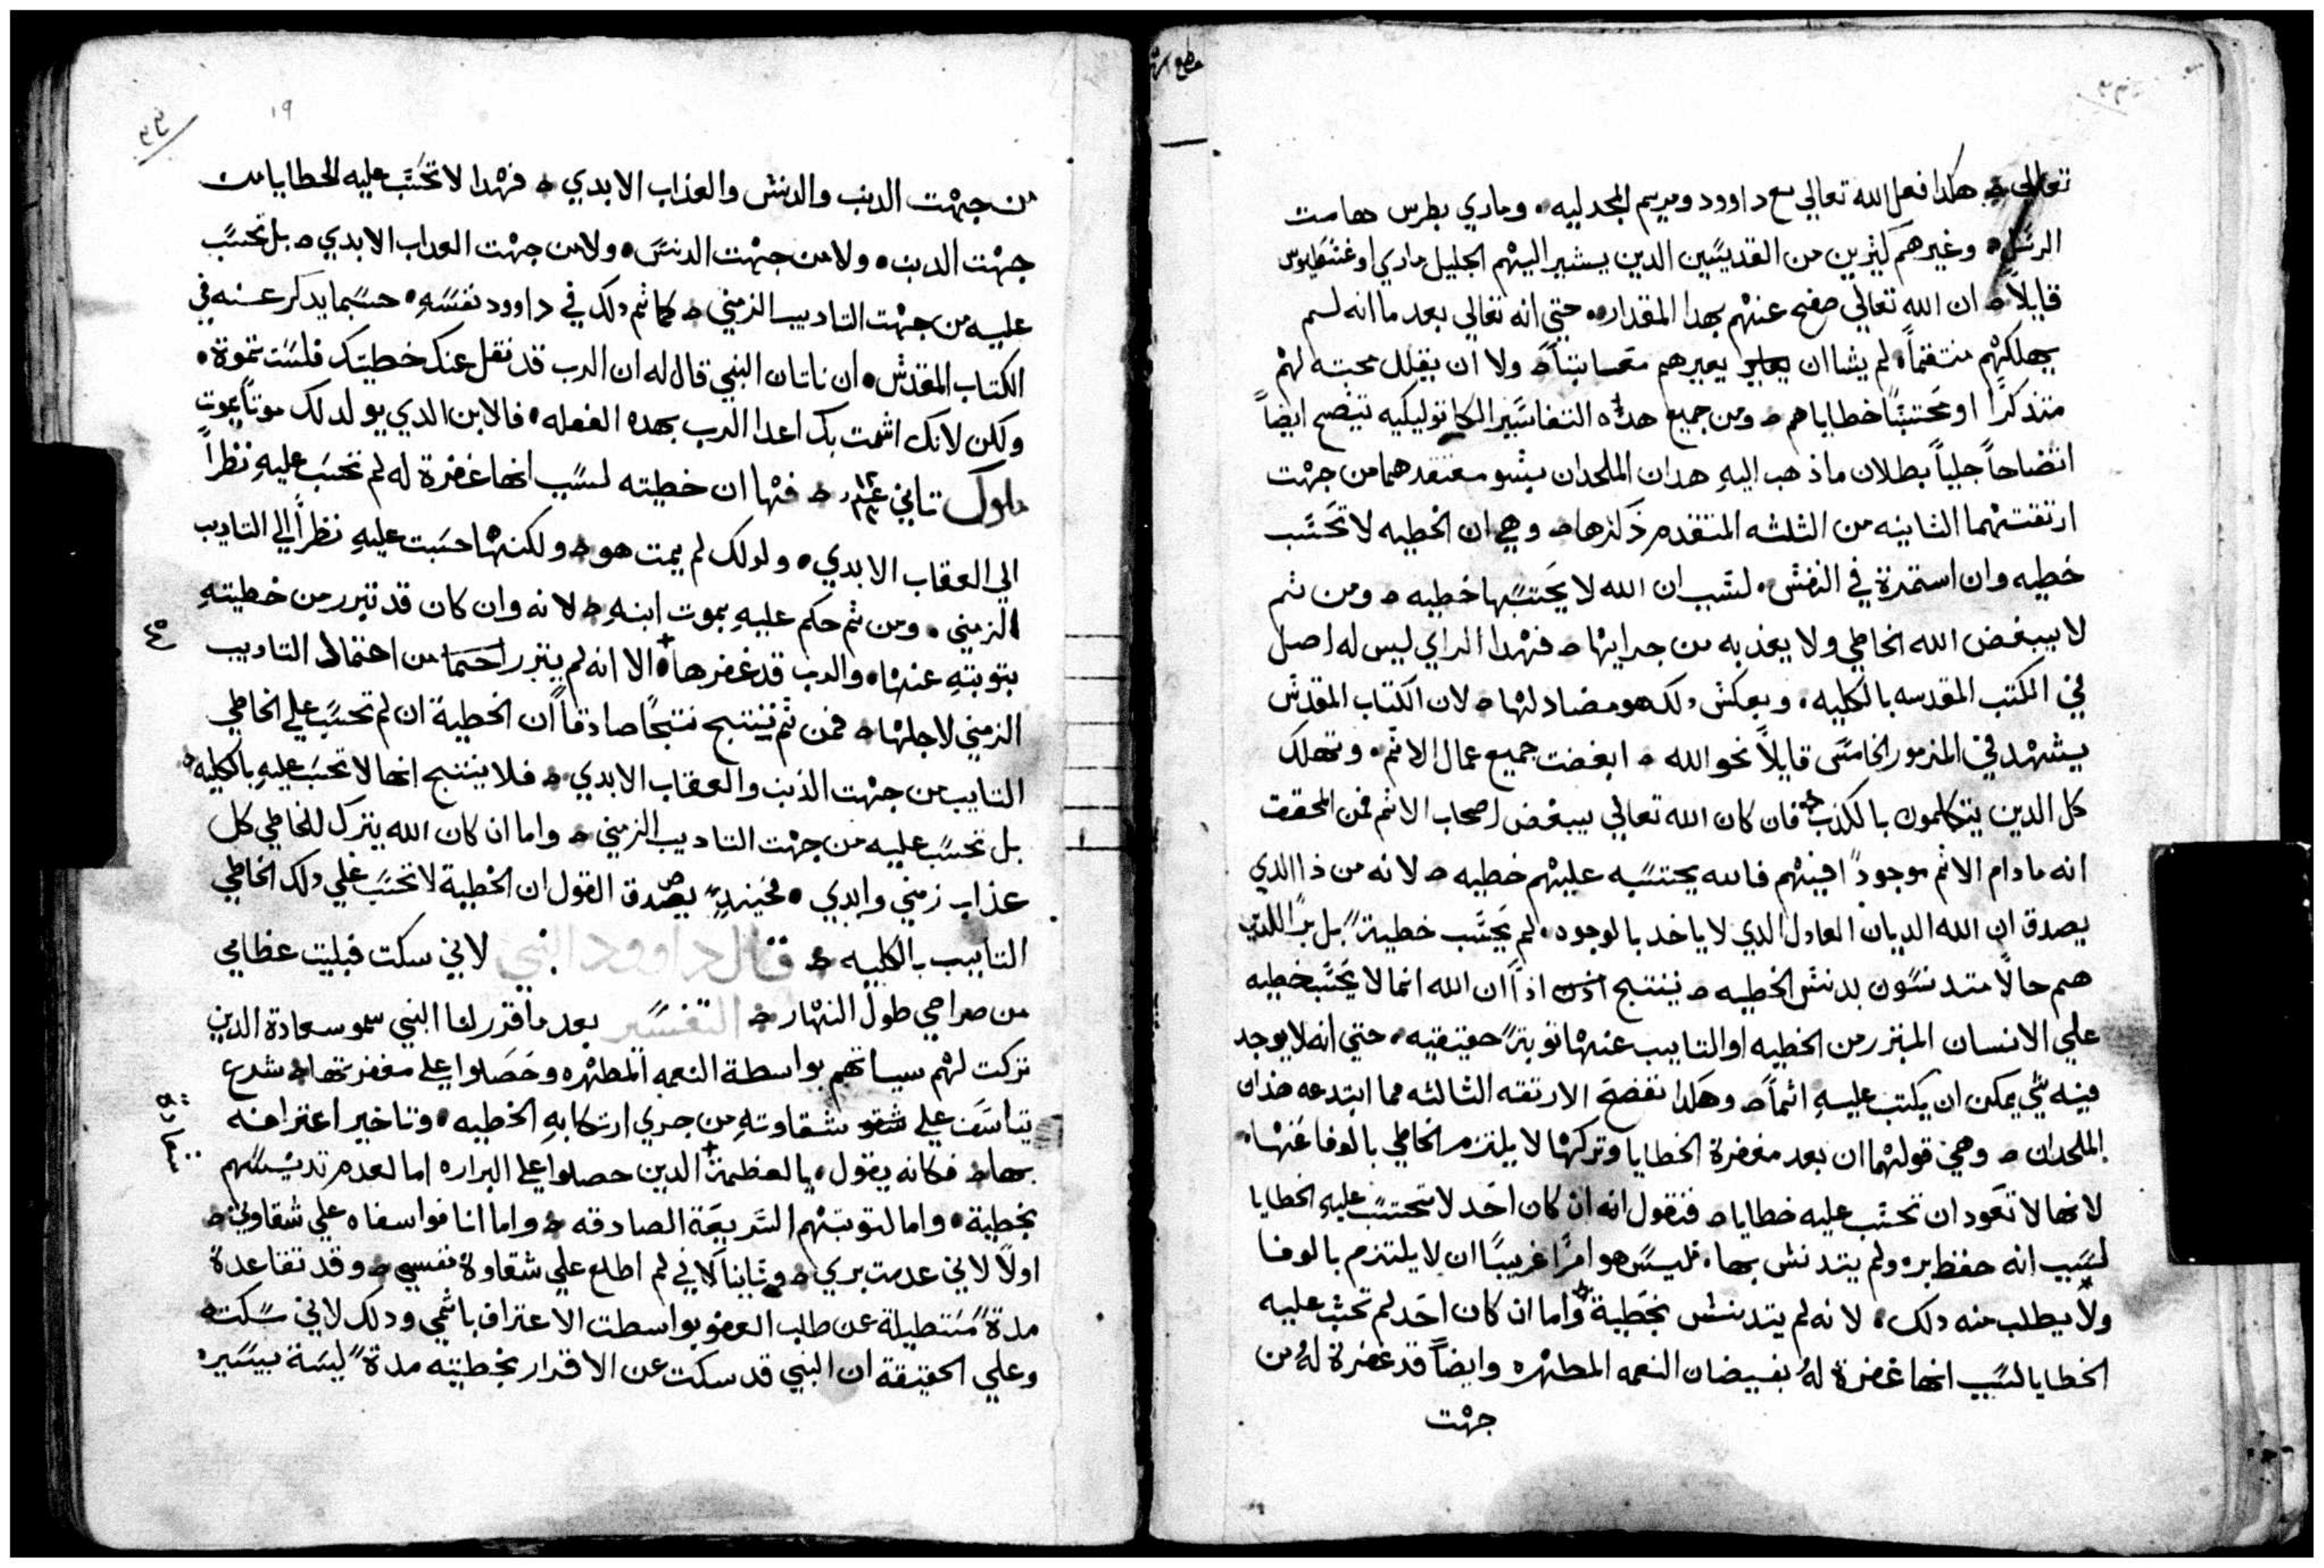 تعالي ه هكدا فعل الله تعالي مع داوود ومريم المجدليه، وماري بطرس هامت
الرسل ه وغيرهم كثيرين من القديسين الدين يشير اليهم الجليل ماري اوغسطينوس
قايلاً ه ان الله تعالي صفح عنهم بهدا المقدار ه حتي انه تعالي بعد ما انه لسم
يهلكهم منتقماً، لم يشا ان يعيرهم معاتباً ه ولا ان يقلل محبته لهم
متذكراً او محتسباً خطاياهم ه ومن جميع هده التفاسير الكاتوليكيه تيضح ايضاً
اتضاحاً جلياً بطلان ما ذهب اليهِ هدان الملحدان بشو معتقدهما من جهت
ارتقتهما التانيه من الثلثه المتقدم ذكرها ه وهي ان الخطيه لا تحسب
خطيه وان استمرة في النفس، لسبب ان الله لا يحتسبها خطيه ه ومن ثم
لا يبغض الله الخاطي ولا يعذبه من جرايها ه فهدا الراي ليس له اصل
في الكتب المقدسه بالكليه، وبعكس دلك هو مضاد لها ه لان الكتاب المقدس
يشهد في المزمور الخامس قايلاً نحو الله ه ابغضت جميع عمال الاثم، وتهلك
كل الدين يتكلمون بالكدب ه فان كان الله تعالي يبغض اصحاب الاثم فمن المحقق
انه ما دام الاثم موجوداً فيهم فالله يحتسبه عليهم خطيه ه لانه من ذا الدي
يصدق ان الله الديان العادل الدي لا ياخد بالوجوه، لم يحسب خطيةً بل براً للدين
هم حالاً متدنسون بدنس الخطيه ه ينتج اذاً ان الله انما لا يحتسب خطيه
علي الانسان المبترر من الخطيه او التايب عنها توبةً حقيقيه، حتي انه لا يوجد
فيه شي يمكن ان يكتب عليهِ اثماً ه وهكدا تفضح الارتقه الثالثه مما ابتدعه هدان
الملحدان ه وهي قولهما ان بعد مغفرة الخطايا وتركها لا يلتزم الخاطي بالوفا عنها،
لانها لا تعود ان تحسب عليه خطايا ه فنقول انه ان كان احد لا تحتسب عليهِ الخطايا
لسبب انه حفظ بره ولم يتدنس بها، فليس هو امراً غريباً ان لا يلتزم بالوفا
ولا يطلب منه دلك، لانه لم يتدنس بخطية ه واما ان كان احد لم تحسب عليه
الخطايا لسبب انها غفرة لهُ بفيضان النعمه المطهره وايضاً قد غفرة لهُ من
جهت
١٩
من جهت الدنب والدنس والعذاب الابدي ه فهدا لا تحسب عليه الخطايا من
جهت الدنب ه ولا من جهت الدنس ه ولا من جهت العداب الابدي ه بل تحسب
عليه من جهت التاديب الزمني ه كما تم دلك في داوود نفسهِ ه حسبما يدكر عنه في
الكتاب المقدس ه ان ناتان النبي قال له ان الرب قد نقل عنك خطيتك فلست تموة ه
ولكن لانك اشمت بك اعدا الرب بهده الفعله ه فالابن الدي يولد لك موتاً يموت
ملوك تاني ١٢ ع ١٣ ه فها ان خطيته لسبب انها غفرة له لم تحسب عليهِ نظراً
الي العقاب الابدي ه ولدلك لم يمت هو ه ولكنها حسبت عليهِ نظراً الي التاديب
الزمني، ومن ثم حكم عليهِ بموت ابنهِ ه لانه وان كان قد تبرر من خطيتهِ
بتوبتهِ عنها ه والرب قد غفرها ه الا انه لم يتبرر من احتمال التاديب
الزمني لاجلها ه فمن ثم ينتج نتجاً صادقاً ان الخطية ان لم تحسب علي الخاطي
التايب من جهت الذنب والعقاب الابدي ه فلا ينتج انها لا تحسب عليهِ بالكليه ه
بل تحسب عليه من جهت التاديب الزمني ه واما ان كان الله يترك للخاطي كل
عذاب زمني وابدي ه فحينيدٍ يصدق القول ان الخطية لا تحسب علي دلك الخاطي
التايب بالكليه ه قال داوود النبي لاني سكت فبليت عظامي
من صراخي طول النهار ه التفسير بعد ما قرر لنا النبي سمو سعادة الدين
تركت لهم سياتهم بواسطة النعمه المطهره وحصلوا علي مغفرتها ه شرع
يتاسف علي شقاوتهِ من جري ارتكابهِ الخطيه ه وتاخير اعترافه
بها ه فكانه يقول، يا لعظمة الدين حصلوا علي البراره اما لعدم تدنيسهم
سعادة
بخطية ه واما لتوبتهم السريعة الصادقه ه واما انا فواسفاه علي شقاوتي ه
اولاً لاني عدمت بري ه وتانياً لاني لم اطلع علي شقاوة نفسي ه وقد تقاعدة
مدةً مستطيلة عن طلب العفو بواسطت الاعتراف باثمي ودلك لاني سكت ه
وعلي الحقيقة ان النبي قد سكت عن الاقرار بخطيته مدةً ليسة بيسيره